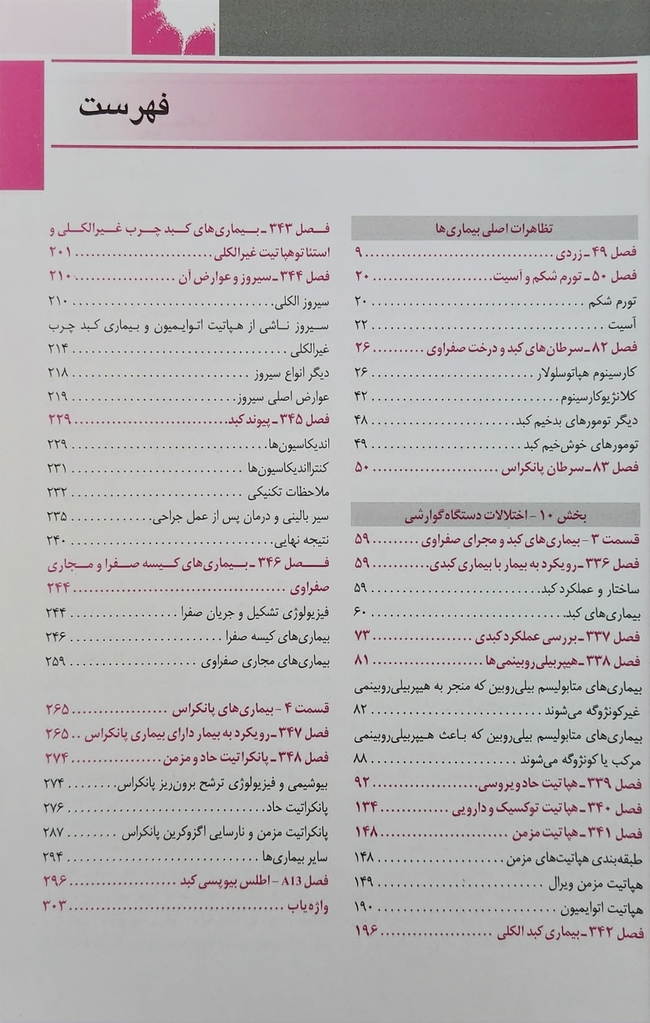 فهرست
تظاهرات اصلی بیماری‌ها
فصل ۴۹ ـ زردی ........ ۹
فصل ۵۰ ـ تورم شکم و آسیت ........ ۲۰
تورم شکم ........ ۲۰
آسیت ........ ۲۲
فصل ۸۲ ـ سرطان‌های کبد و درخت صفراوی ........ ۲۶
کارسینوم هپاتوسلولار ........ ۲۶
کلانژیوکارسینوم ........ ۴۲
دیگر تومورهای بدخیم کبد ........ ۴۸
تومورهای خوش‌خیم کبد ........ ۴۹
فصل ۸۳ ـ سرطان پانکراس ........ ۵۰
بخش ۱۰ - اختلالات دستگاه گوارشی
قسمت ۳ - بیماری‌های کبد و مجرای صفراوی ........ ۵۹
فصل ۳۳۶ ـ رویکرد به بیمار با بیماری کبدی ........ ۵۹
ساختار و عملکرد کبد ........ ۵۹
بیماری‌های کبد ........ ۶۰
فصل ۳۳۷ ـ بررسی عملکرد کبدی ........ ۷۳
فصل ۳۳۸ ـ هیپربیلی‌روبینمی‌ها ........ ۸۱
بیماری‌های متابولیسم بیلی‌روبین که منجر به هیپربیلی‌روبینمی
غیرکونژوگه می‌شوند ........ ۸۲
بیماری‌های متابولیسم بیلی‌روبین که باعث هیپربیلی‌روبینمی
مرکب یا کونژوگه می‌شوند ........ ۸۸
فصل ۳۳۹ ـ هپاتیت حاد ویروسی ........ ۹۲
فصل ۳۴۰ ـ هپاتیت توکسیک و دارویی ........ ۱۳۴
فصل ۳۴۱ ـ هپاتیت مزمن ........ ۱۴۸
طبقه‌بندی هپاتیت‌های مزمن ........ ۱۴۸
هپاتیت مزمن ویرال ........ ۱۴۹
هپاتیت اتوایمیون ........ ۱۹۰
فصل ۳۴۲ ـ بیماری کبد الکلی ........ ۱۹۶
فصل ۳۴۳ ـ بیماری‌های کبد چرب غیرالکلی و
استئاتوهپاتیت غیرالکلی ........ ۲۰۱
فصل ۳۴۴ ـ سیروز و عوارض آن ........ ۲۱۰
سیروز الکلی ........ ۲۱۰
سیروز ناشی از هپاتیت اتوایمیون و بیماری کبد چرب
غیرالکلی ........ ۲۱۴
دیگر انواع سیروز ........ ۲۱۸
عوارض اصلی سیروز ........ ۲۱۹
فصل ۳۴۵ ـ پیوند کبد ........ ۲۲۹
اندیکاسیون‌ها ........ ۲۲۹
کنترااندیکاسیون‌ها ........ ۲۳۱
ملاحظات تکنیکی ........ ۲۳۲
سیر بالینی و درمان پس از عمل جراحی ........ ۲۳۵
نتیجه نهایی ........ ۲۴۰
فصل ۳۴۶ ـ بیماری‌های کیسه صفرا و مجاری
صفراوی ........ ۲۴۴
فیزیولوژی تشکیل و جریان صفرا ........ ۲۴۴
بیماری‌های کیسه صفرا ........ ۲۴۶
بیماری‌های مجاری صفراوی ........ ۲۵۹
قسمت ۴ - بیماری‌های پانکراس ........ ۲۶۵
فصل ۳۴۷ ـ رویکرد به بیمار دارای بیماری پانکراس .. ۲۶۵
فصل ۳۴۸ ـ پانکراتیت حاد و مزمن ........ ۲۷۴
بیوشیمی و فیزیولوژی ترشح برون‌ریز پانکراس ........ ۲۷۴
پانکراتیت حاد ........ ۲۷۶
پانکراتیت مزمن و نارسایی اگزوکرین پانکراس ........ ۲۸۷
سایر بیماری‌ها ........ ۲۹۴
فصل A13 - اطلس بیوپسی کبد ........ ۲۹۶
واژه‌یاب ........ ۳۰۳